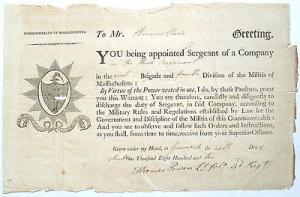 COMMONWEALTH OF MASSACHUSETTS.
To Mr. Greeting.
YOU being appointed Sergeant of a Company
in the Regiment
in the Brigade and Division of the Militia of
Massachusetts:
By Virtue of the Power vested in me, I do, by these Presents, grant
you this Warrant: You are, therefore, carefully and diligently to
discharge the duty of Sergeant, in said Company, according to the
Military Rules and Regulations established by Law for the
Government and Discipline of the Militia of this Commonwealth: And
you are to observe and follow such Orders and Instructions, as
you shall, from time to time, receive from your Superior Officers.
Given under my Hand, at Day of
One Thousand Eight Hundred and
Thomas Lt Col.